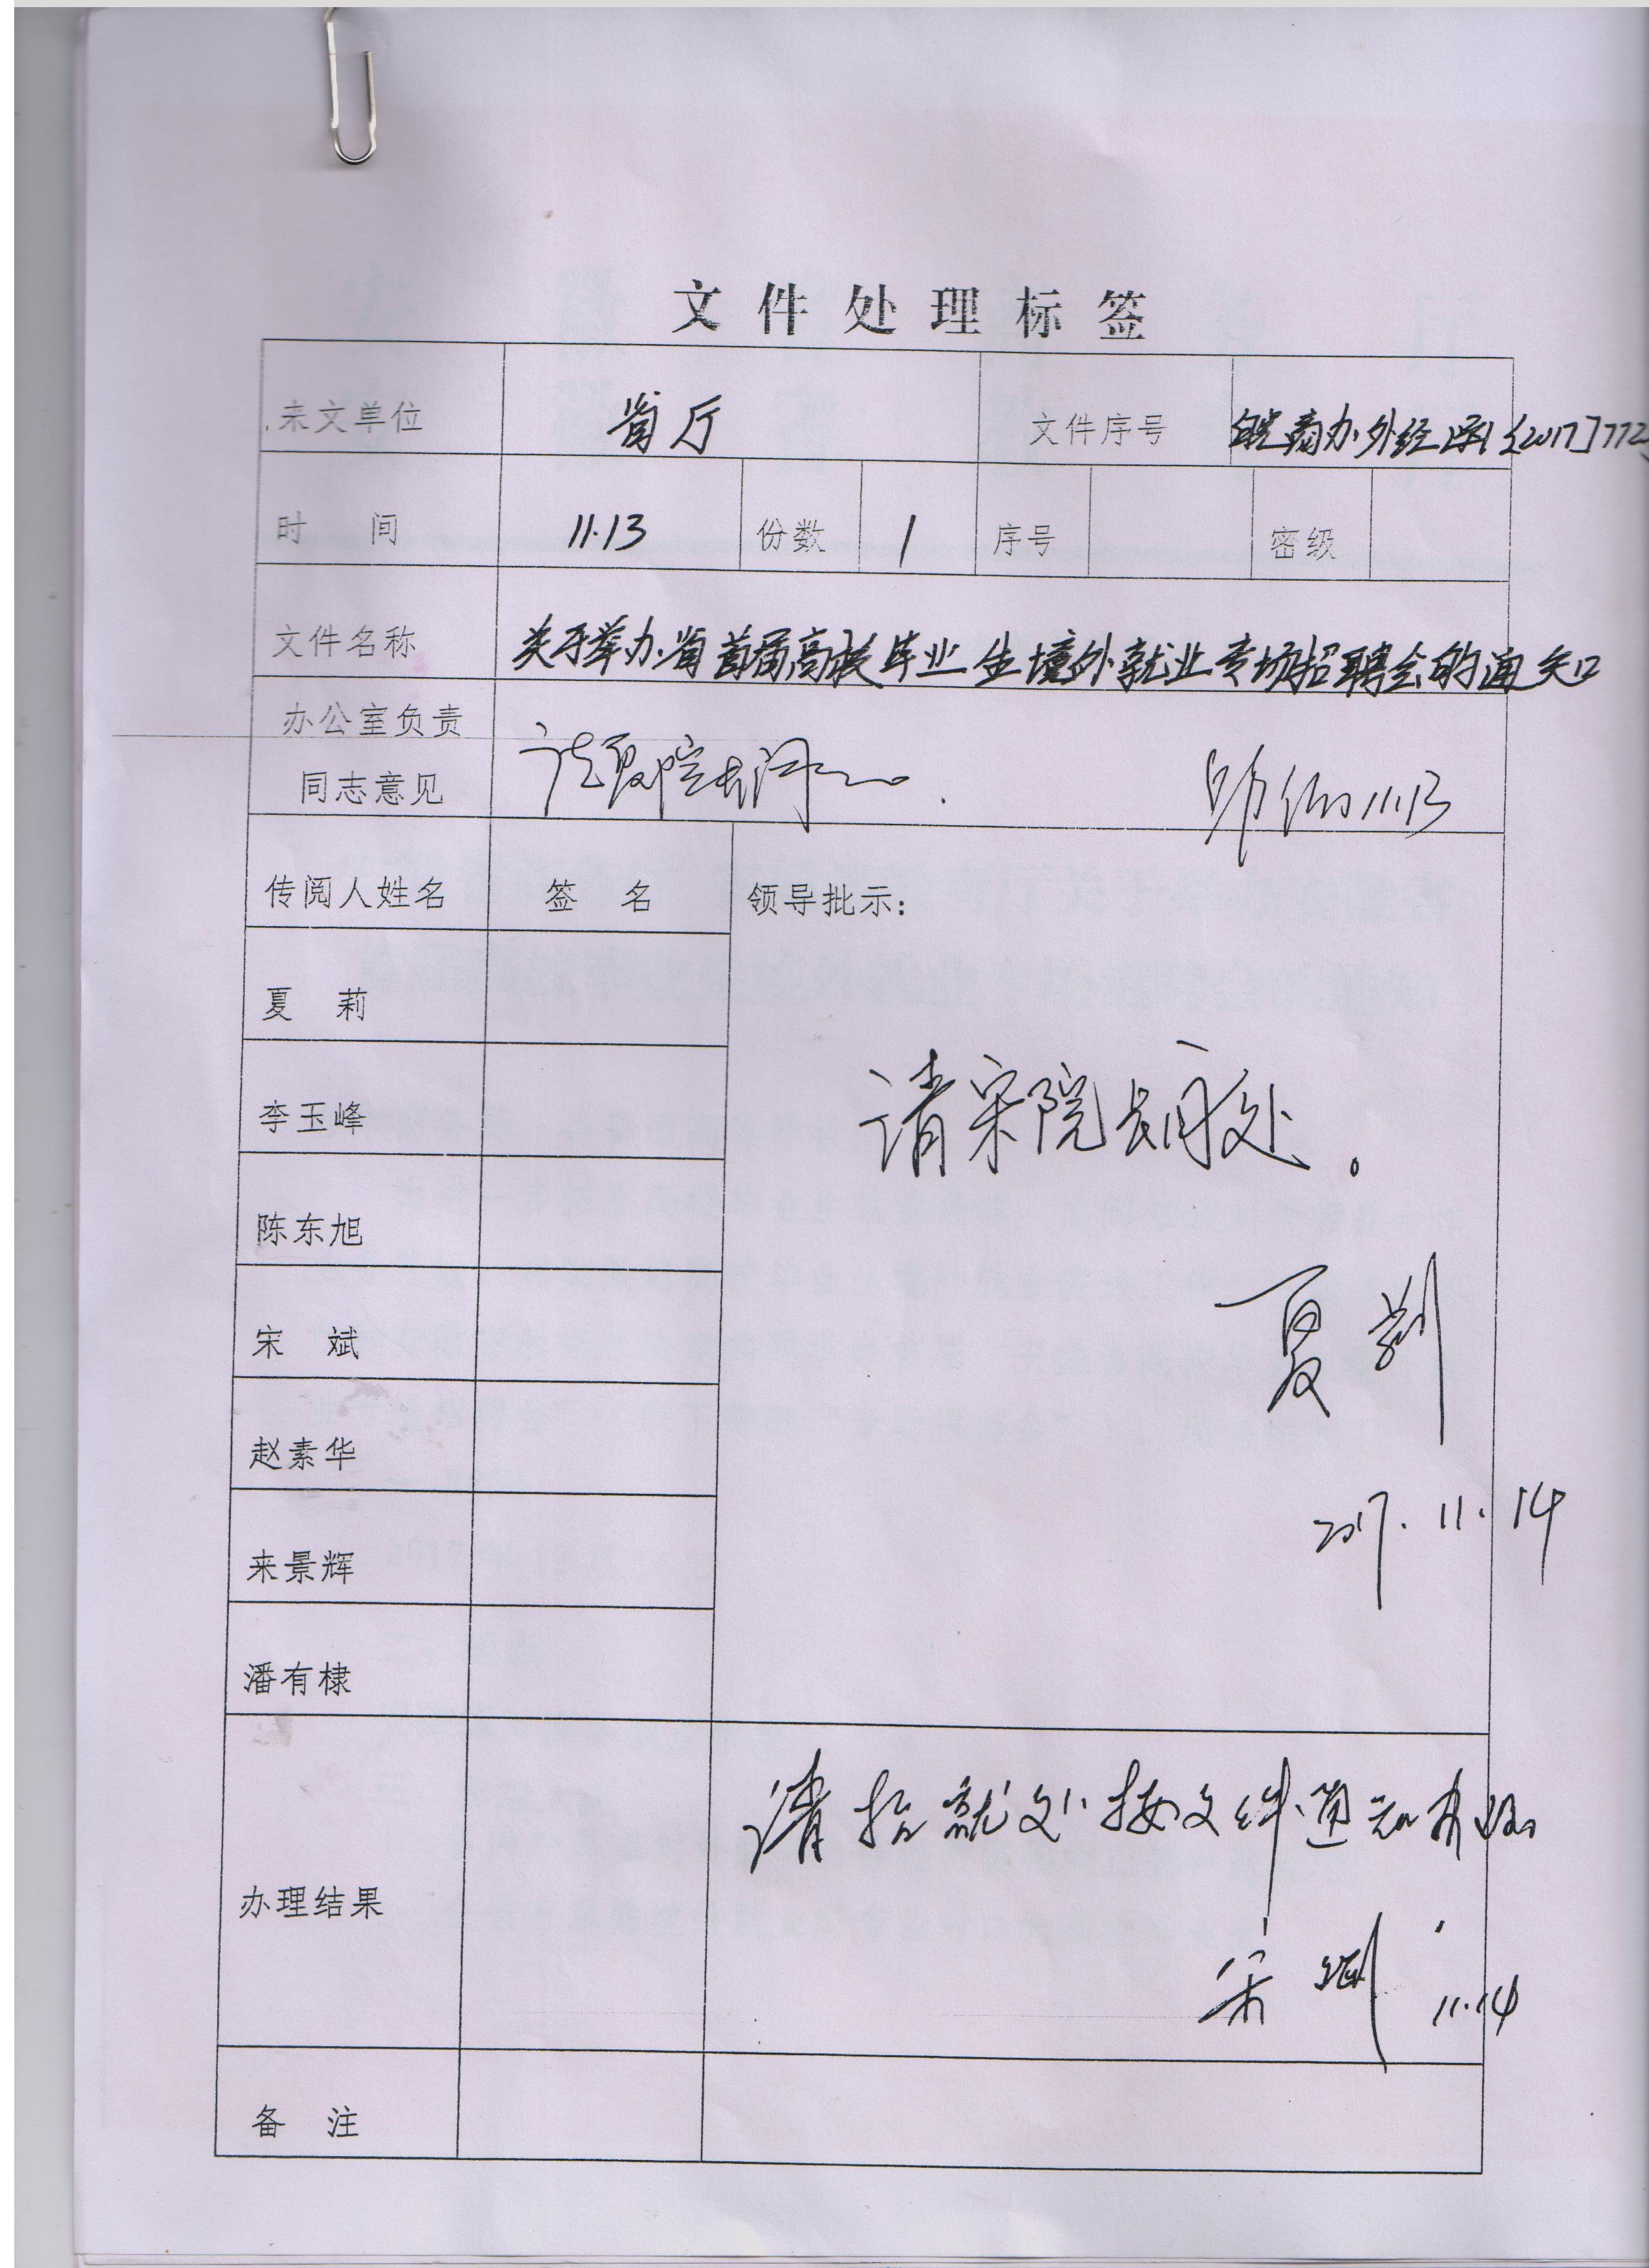 文件处理标签
来文单位 省厅 文件序号 皖商办外经函〔2017〕772
时 间 11.13 份数 1 序号 密级
文件名称 关于举办省首届高校毕业生境外就业专场招聘会的通知
办公室负责
同志意见 请夏院长阅示 11.13
传阅人姓名 签 名 领导批示:
夏 莉
李玉峰 请宋院长阅处。
陈东旭
宋 斌 夏莉
赵素华
来景辉 2017.11.14
潘有棣
请招就处按文件通知办理
办理结果
宋斌 11.14
备 注